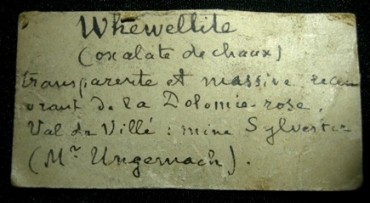 Whewellite
(oxalate de chaux)
transparente et massive recou
vrant de la Dolomie rose.
Val de Villé : mine Sylvester
(Mr Ungemach).